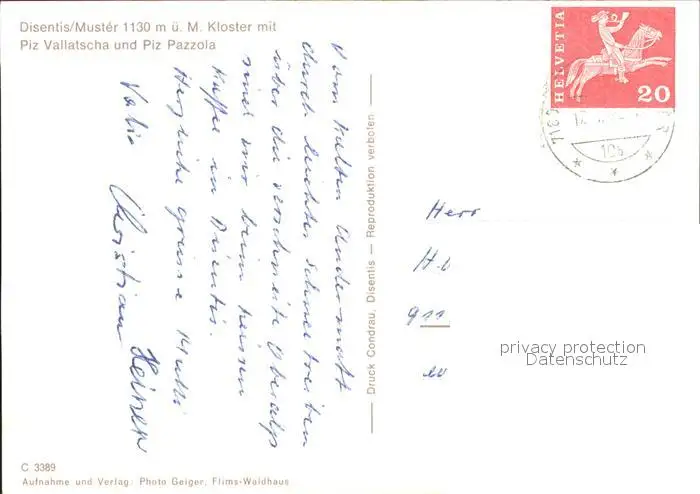 Disentis/Mustér 1130 m ü. M. Kloster mit
Piz Vallatscha und Piz Pazzola
Vom kalten Andermatt
durch leichtes Schneetreiben
über die verschneite Oberalp
sind wir beim heissen
Kaffee in Disentis.
Herzliche grüsse Mutti
Christian
HELVETIA
20
10
Herr
911
Druck Condrau, Disentis — Reproduktion verboten
privacy protection
Datenschutz
C 3389
Aufnahme und Verlag: Photo Geiger, Flims-Waldhaus